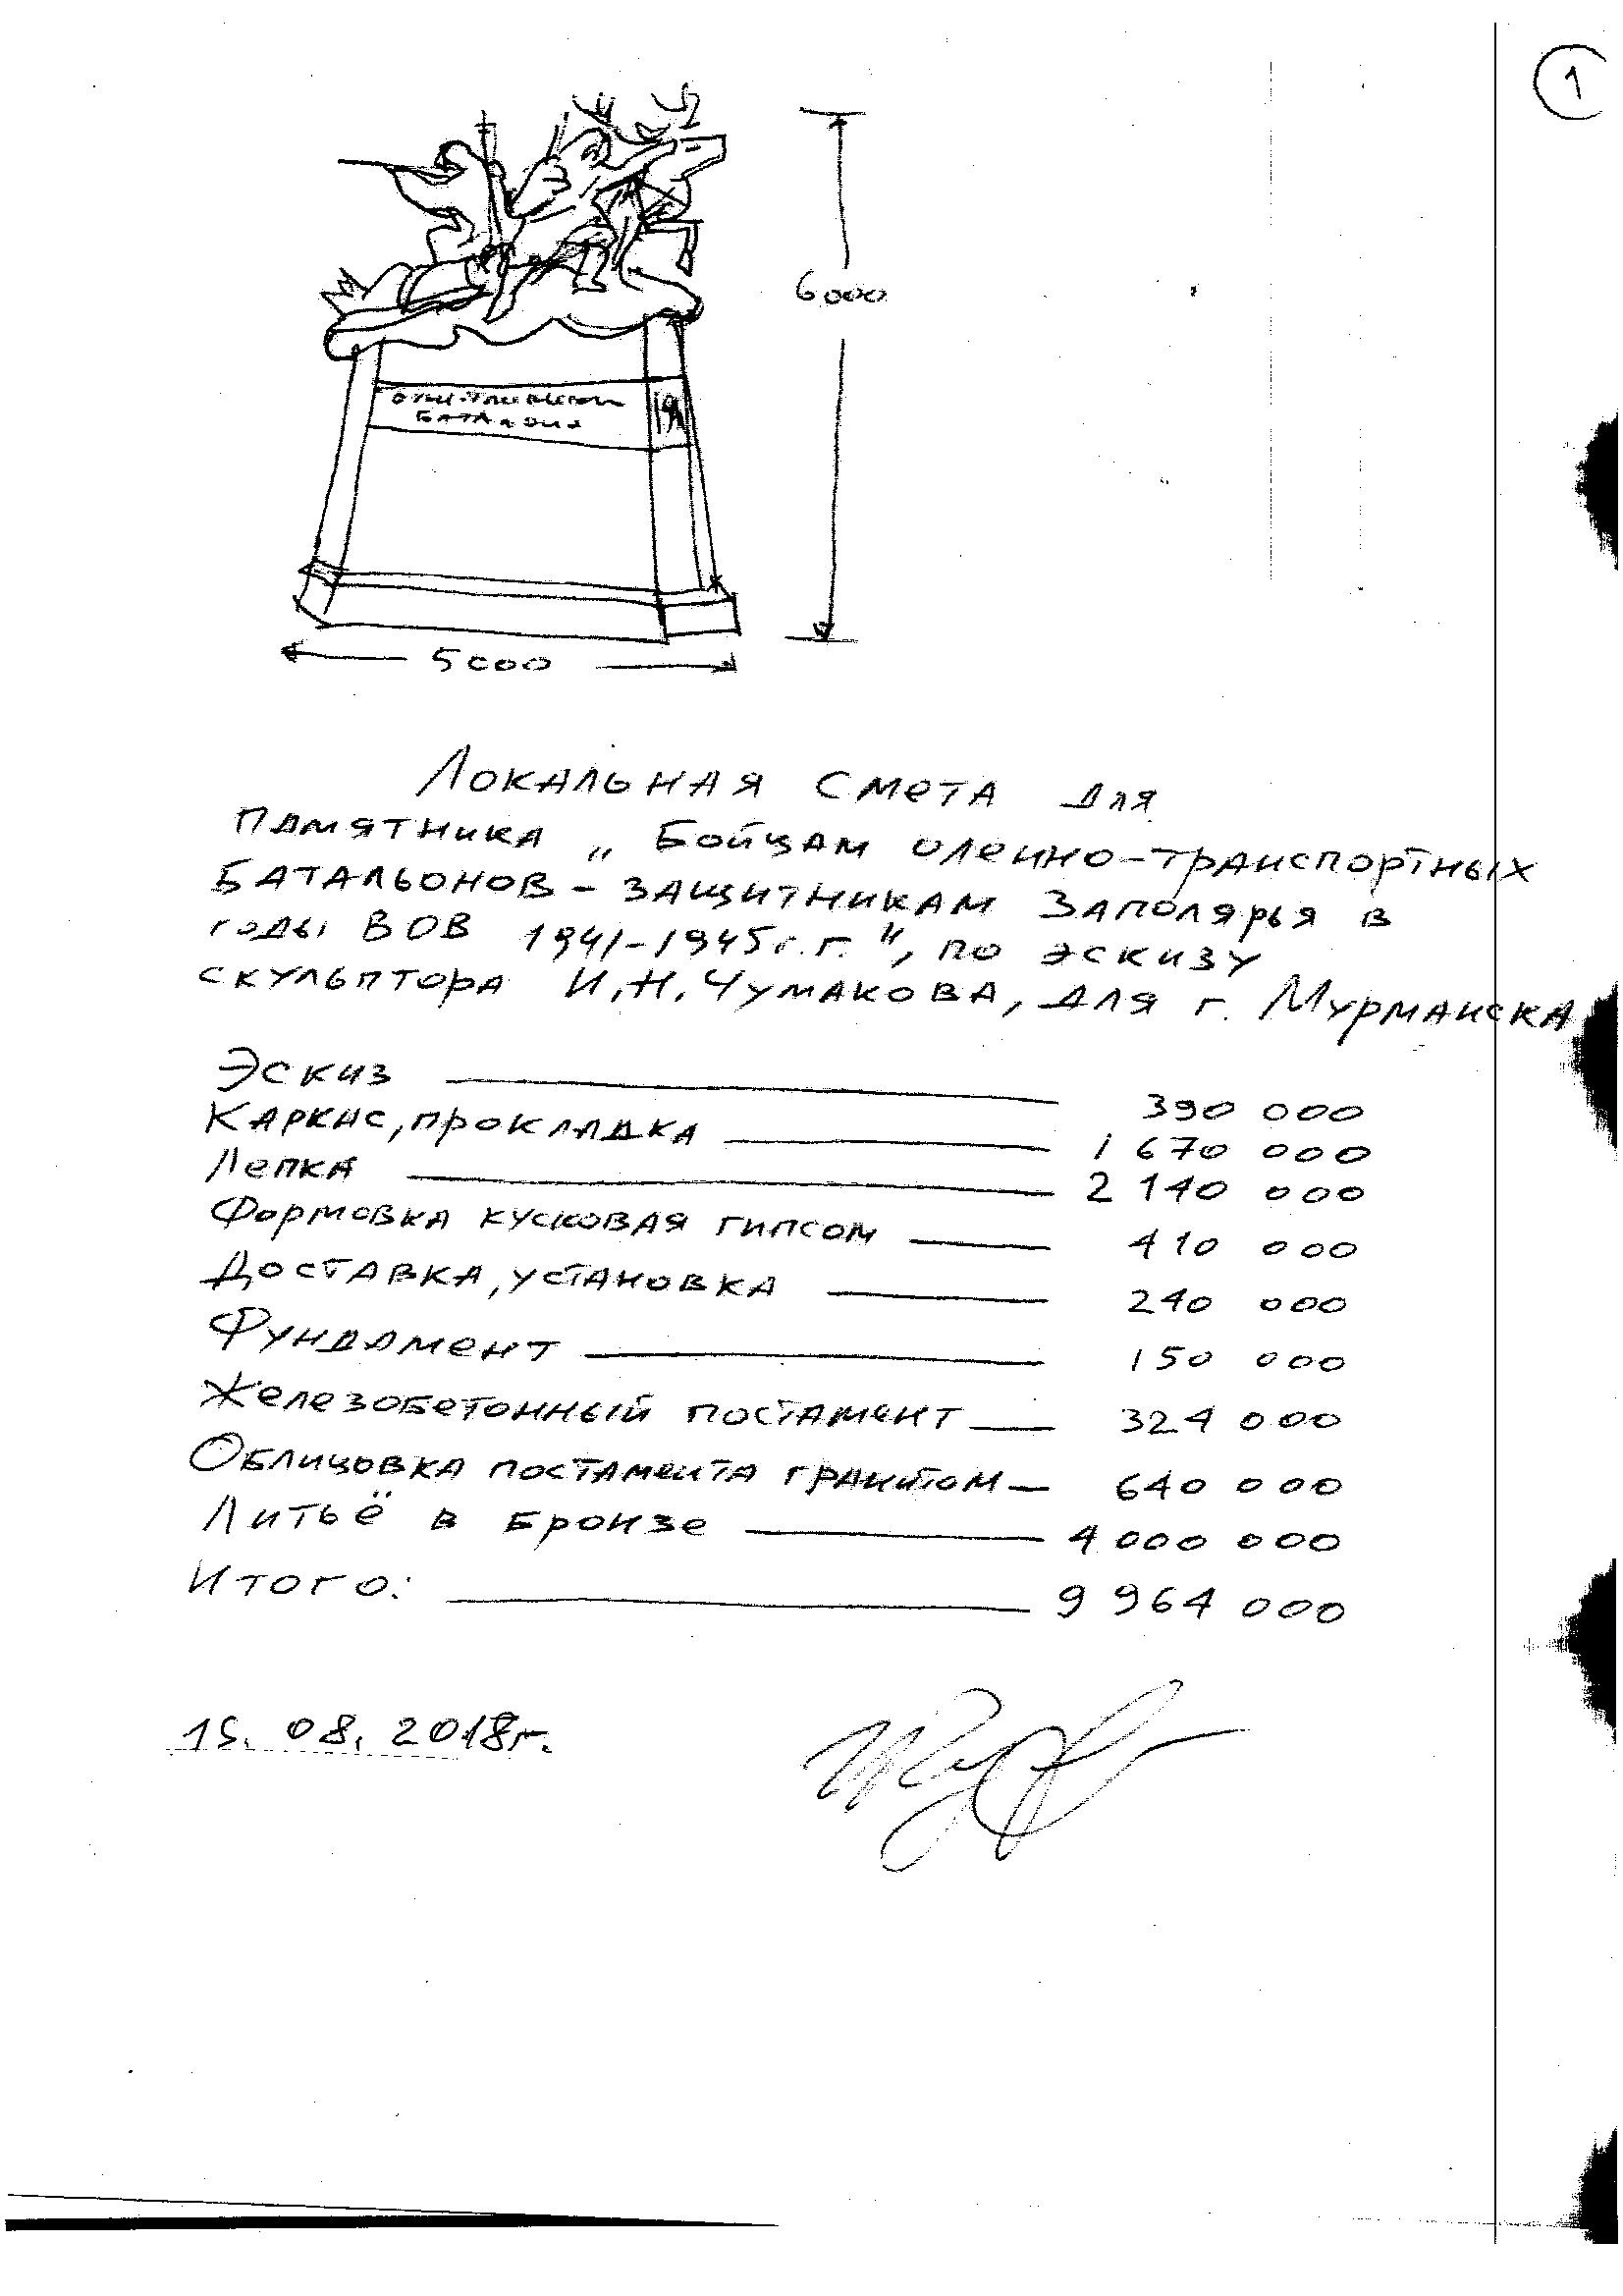 1
6000
5000
Локальная смета для
памятника „Бойцам оленно-транспортных
батальонов - защитникам Заполярья в
годы ВОВ 1941-1945г.г.", по эскизу
скульптора И.Н.Чумакова, для г. Мурманска
Эскиз 390 000
Каркас, прокладка 1 670 000
Лепка 2 140 000
Формовка кусковая гипсом 410 000
Доставка, установка 240 000
Фундамент 150 000
Железобетонный постамент 324 000
Облицовка постамента гранитом 640 000
Литьё в бронзе 4 000 000
Итого: 9 964 000
15. 08. 2018г.